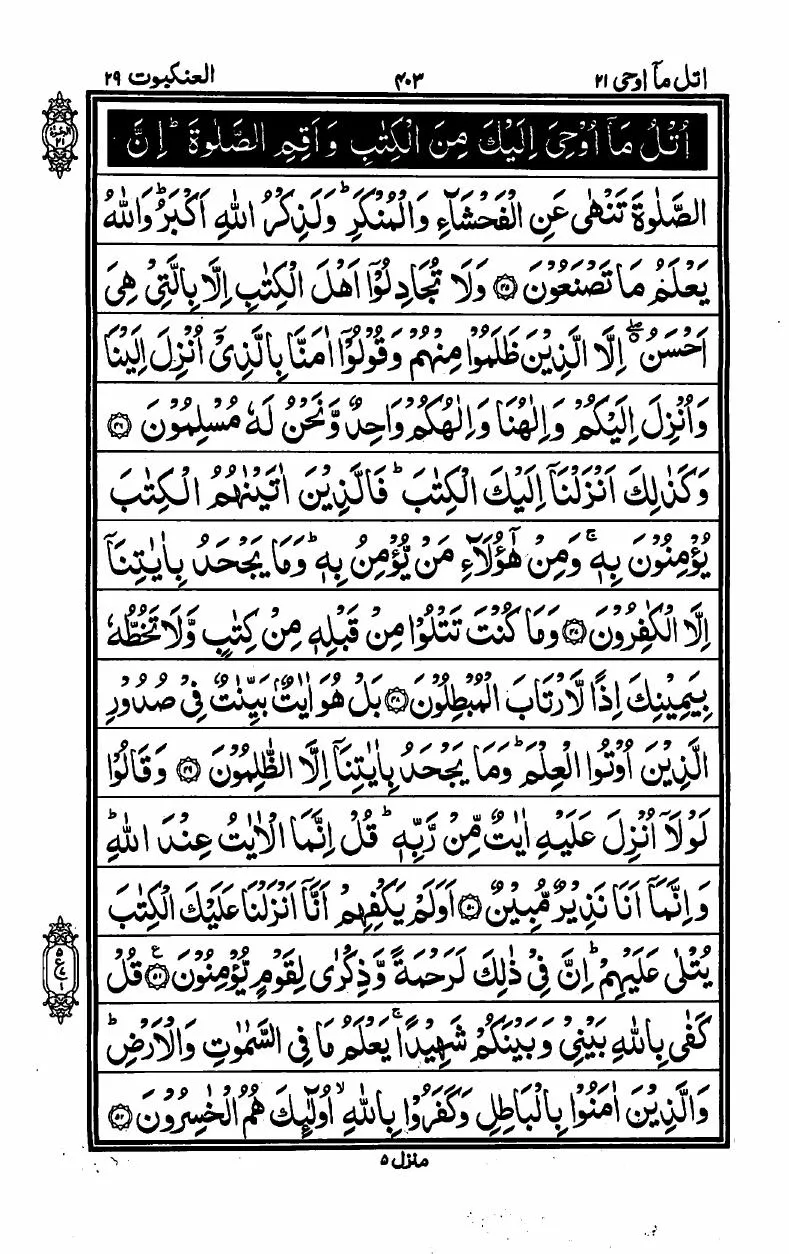 اتل مآ اوحی ۲۱
۴۰۳
العنکبوت ۲۹
اُتْلُ مَآ اُوْحِیَ اِلَیْكَ مِنَ الْكِتٰبِ وَاَقِمِ الصَّلٰوةَ ؕ اِنَّ
الصَّلٰوةَ تَنْهٰی عَنِ الْفَحْشَآءِ وَالْمُنْكَرِ ؕ وَلَذِكْرُ اللّٰهِ اَكْبَرُ ؕ وَاللّٰهُ
یَعْلَمُ مَا تَصْنَعُوْنَ ﴿۴۵﴾ وَلَا تُجَادِلُوْۤا اَهْلَ الْكِتٰبِ اِلَّا بِالَّتِیْ هِیَ
اَحْسَنُ ۖ اِلَّا الَّذِیْنَ ظَلَمُوْا مِنْهُمْ وَقُوْلُوْۤا اٰمَنَّا بِالَّذِیْۤ اُنْزِلَ اِلَیْنَا
وَاُنْزِلَ اِلَیْكُمْ وَاِلٰهُنَا وَاِلٰهُكُمْ وَاحِدٌ وَّنَحْنُ لَهٗ مُسْلِمُوْنَ ﴿۴۶﴾
وَكَذٰلِكَ اَنْزَلْنَاۤ اِلَیْكَ الْكِتٰبَ ؕ فَالَّذِیْنَ اٰتَیْنٰهُمُ الْكِتٰبَ
یُؤْمِنُوْنَ بِهٖ ۚ وَمِنْ هٰۤؤُلَآءِ مَنْ یُّؤْمِنُ بِهٖ ؕ وَمَا یَجْحَدُ بِاٰیٰتِنَاۤ
اِلَّا الْكٰفِرُوْنَ ﴿۴۷﴾ وَمَا كُنْتَ تَتْلُوْا مِنْ قَبْلِهٖ مِنْ كِتٰبٍ وَّلَا تَخُطُّهٗ
بِیَمِیْنِكَ اِذًا لَّارْتَابَ الْمُبْطِلُوْنَ ﴿۴۸﴾ بَلْ هُوَ اٰیٰتٌۢ بَیِّنٰتٌ فِیْ صُدُوْرِ
الَّذِیْنَ اُوْتُوا الْعِلْمَ ؕ وَمَا یَجْحَدُ بِاٰیٰتِنَاۤ اِلَّا الظّٰلِمُوْنَ ﴿۴۹﴾ وَقَالُوْا
لَوْلَاۤ اُنْزِلَ عَلَیْهِ اٰیٰتٌ مِّنْ رَّبِّهٖ ؕ قُلْ اِنَّمَا الْاٰیٰتُ عِنْدَ اللّٰهِ ؕ
وَاِنَّمَاۤ اَنَا نَذِیْرٌ مُّبِیْنٌ ﴿۵۰﴾ اَوَلَمْ یَكْفِهِمْ اَنَّاۤ اَنْزَلْنَا عَلَیْكَ الْكِتٰبَ
یُتْلٰی عَلَیْهِمْ ؕ اِنَّ فِیْ ذٰلِكَ لَرَحْمَةً وَّذِكْرٰی لِقَوْمٍ یُّؤْمِنُوْنَ ﴿۵۱﴾ قُلْ
كَفٰی بِاللّٰهِ بَیْنِیْ وَبَیْنَكُمْ شَهِیْدًا ۚ یَعْلَمُ مَا فِی السَّمٰوٰتِ وَالْاَرْضِ ؕ
وَالَّذِیْنَ اٰمَنُوْا بِالْبَاطِلِ وَكَفَرُوْا بِاللّٰهِ ۙ اُولٰٓئِكَ هُمُ الْخٰسِرُوْنَ ﴿۵۲﴾
منزل ۵